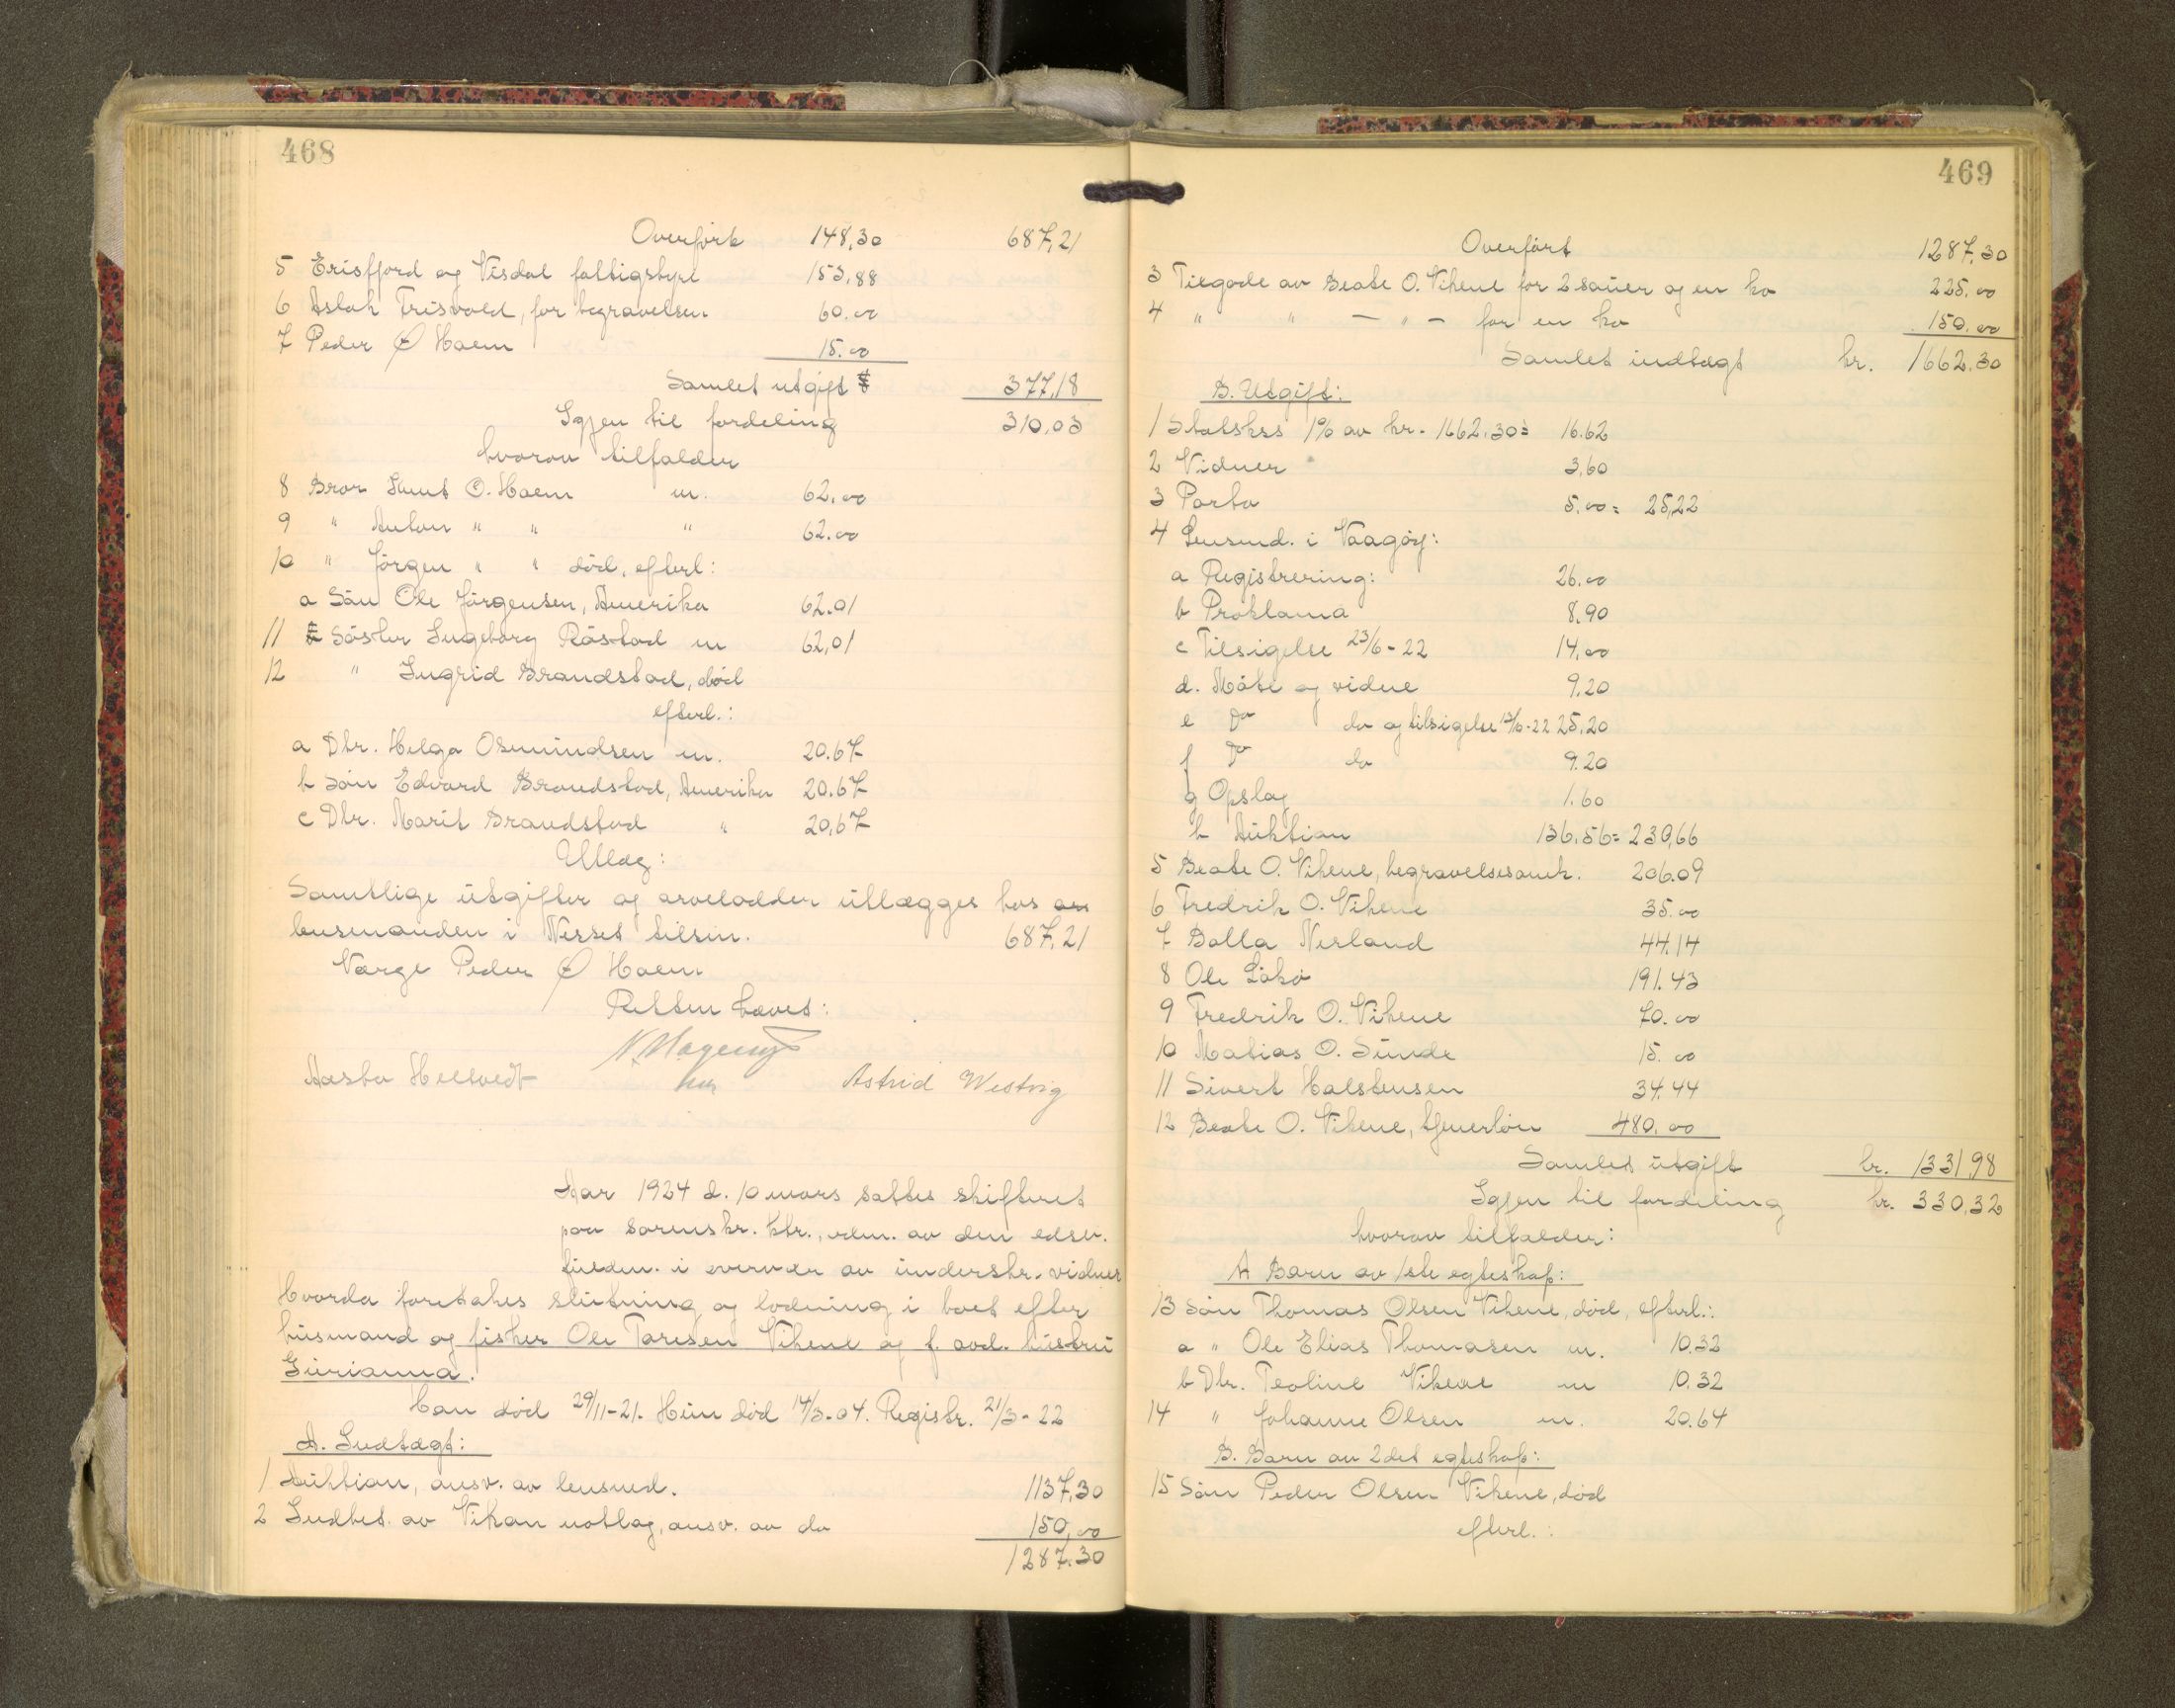 468
Overført 148,30 687,21
5 Erisfjord og Visdal fattigstyre 153,88
6 Aslak Frisvold, for begravelsen 60.00
7 Peder Ø Hoem 15.00
Samlet utgift 377,18
Igjen til fordeling 310,03
hvorav tilfalder
8 Bror Knut O. Hoem m. 62,00
9 " Anton " " " 62.00
10 " Jörgen " " död, efterl:
a Sön Ole Jörgensen, Amerika 62.01
11 Söster Ingeborg Röstad m 62,01
12 " Ingrid Brandstad, död
efterl.:
a Dtr. Helga Osmundsen m. 20.67
b Sön Edvard Brandstad, Amerika 20.67
c Dtr. Marit Brandstad " 20,67
Utlæg:
Samtlige utgifter og arvelodder utlægges hos
lensmanden i Nesset tilsm. 687,21
Værge Peder Ø Hoem
Retten hævet:
Aasta Helsvedt Astrid Westvig
Aar 1924 d. 10 mars sattes skifteret
paa sorenskr. ktr., adm. av den edsv.
fuldm. i overvær av underskr. vidner
Hvorda foretakes slutning og lodning i boet efter
husmand og fisker Ole Taresen Vikene og f. avd. hustru
Gurianna.
Han död 29/11-21. Hun död 14/3-04. Registr. 21/3-22
A. Indtægt:
1 Auktion, ansv. av lensmd. 1137,30
2 Indbet. av Vikan notlag, ansv. av do 150,00
1287.30
469
Overført 1287,30
3 Tilgode av Beate O. Vikene for 2 sauer og en ko 225.00
4 " " — " — for en ko 150.00
Samlet indtægt kr. 1662.30
B. Utgift:
1 Statskss 1% av kr. 1662.30= 16.62
2 Vidner 3,60
3 Porto 5.00= 25,22
4 Lensmd. i Vaagöy:
a Registrering: 26.00
b Proklama 8.90
c Tilsigelse 23/6-22 14,00
d. Möte og vidne 9.20
e Do do og tilsigelse 13/6-22 25,20
f Do do 9.20
g Opslag 1.60
h Auktion 136,56= 230,66
5 Beate O. Vikene, begravelsesomk. 206.09
6 Fredrik O. Vikene 35.00
7 Balla Nerland 44.14
8 Ole Lökö 191.43
9 Fredrik O. Vikene 70.00
10 Matias O. Sunde 15.00
11 Sivert Halstensen 34.44
12 Beate O. Vikene, tjenerlön 480.00
Samlet utgift kr. 1331,98
Igjen til fordeling kr. 330,32
hvorav tilfalder:
A Barn av 1ste egteskap:
13 Sön Thomas Olsen Vikene, död, efterl.:
a " Ole Elias Thomasen m. 10.32
b Dtr. Teoline Vikene m 10.32
14 " Johanne Olsen m. 20.64
B. Barn av 2det egteskap:
15 Sön Peder Olsen Vikene, död
efterl.: